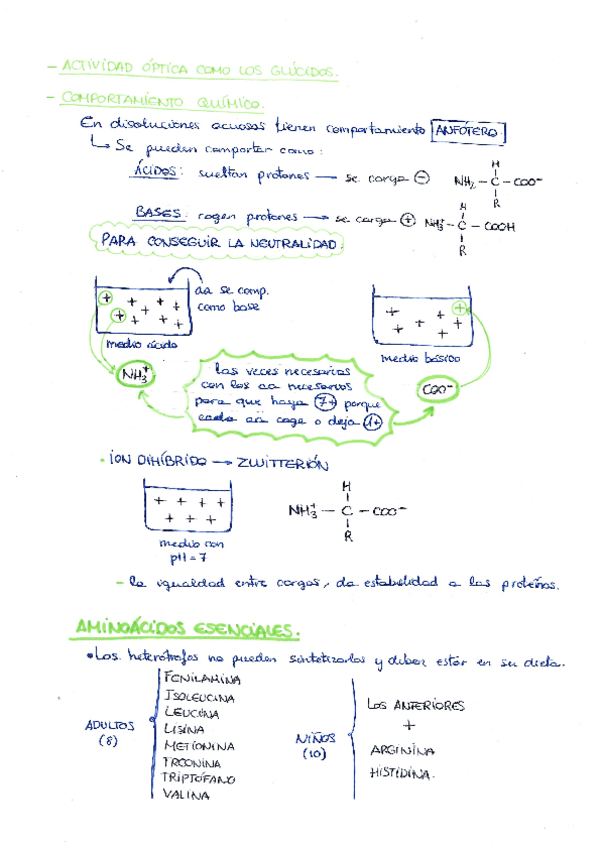 - ACTIVIDAD ÓPTICA COMO LOS GLÚCIDOS.
- COMPORTAMIENTO QUÍMICO.
En disoluciones acuosas tienen comportamiento ANFÓTERO
↳ Se pueden comportar como:
ÁCIDOS: sueltan protones → se carga ⊖
H
NH2 - C - COO-
R
BASES: cogen protones → se carga ⊕
H
NH3+ - C - COOH
R
PARA CONSEGUIR LA NEUTRALIDAD.
aa se comp.
como base
+ + + + +
+ + + +
medio ácido
+ + +
+ + + +
medio básico
NH3+
COO-
Las veces necesarias
con los aa necesarios
para que haya 7+ porque
cada aa coge o deja 1+
- ION DIHÍBRIDO → ZWITTERIÓN
+ + + +
+ + +
medio con
pH = 7
H
NH3+ - C - COO-
R
- la igualdad entre cargas, da estabilidad a las proteínas.
AMINOÁCIDOS ESENCIALES.
• Los heterótrofos no pueden sintetizarlos y deben estar en su dieta.
ADULTOS
(8)
FENILAMINA
ISOLEUCINA
LEUCINA
LISINA
METIONINA
TREONINA
TRIPTÓFANO
VALINA
NIÑOS
(10)
LOS ANTERIORES
+
ARGININA
HISTIDINA.